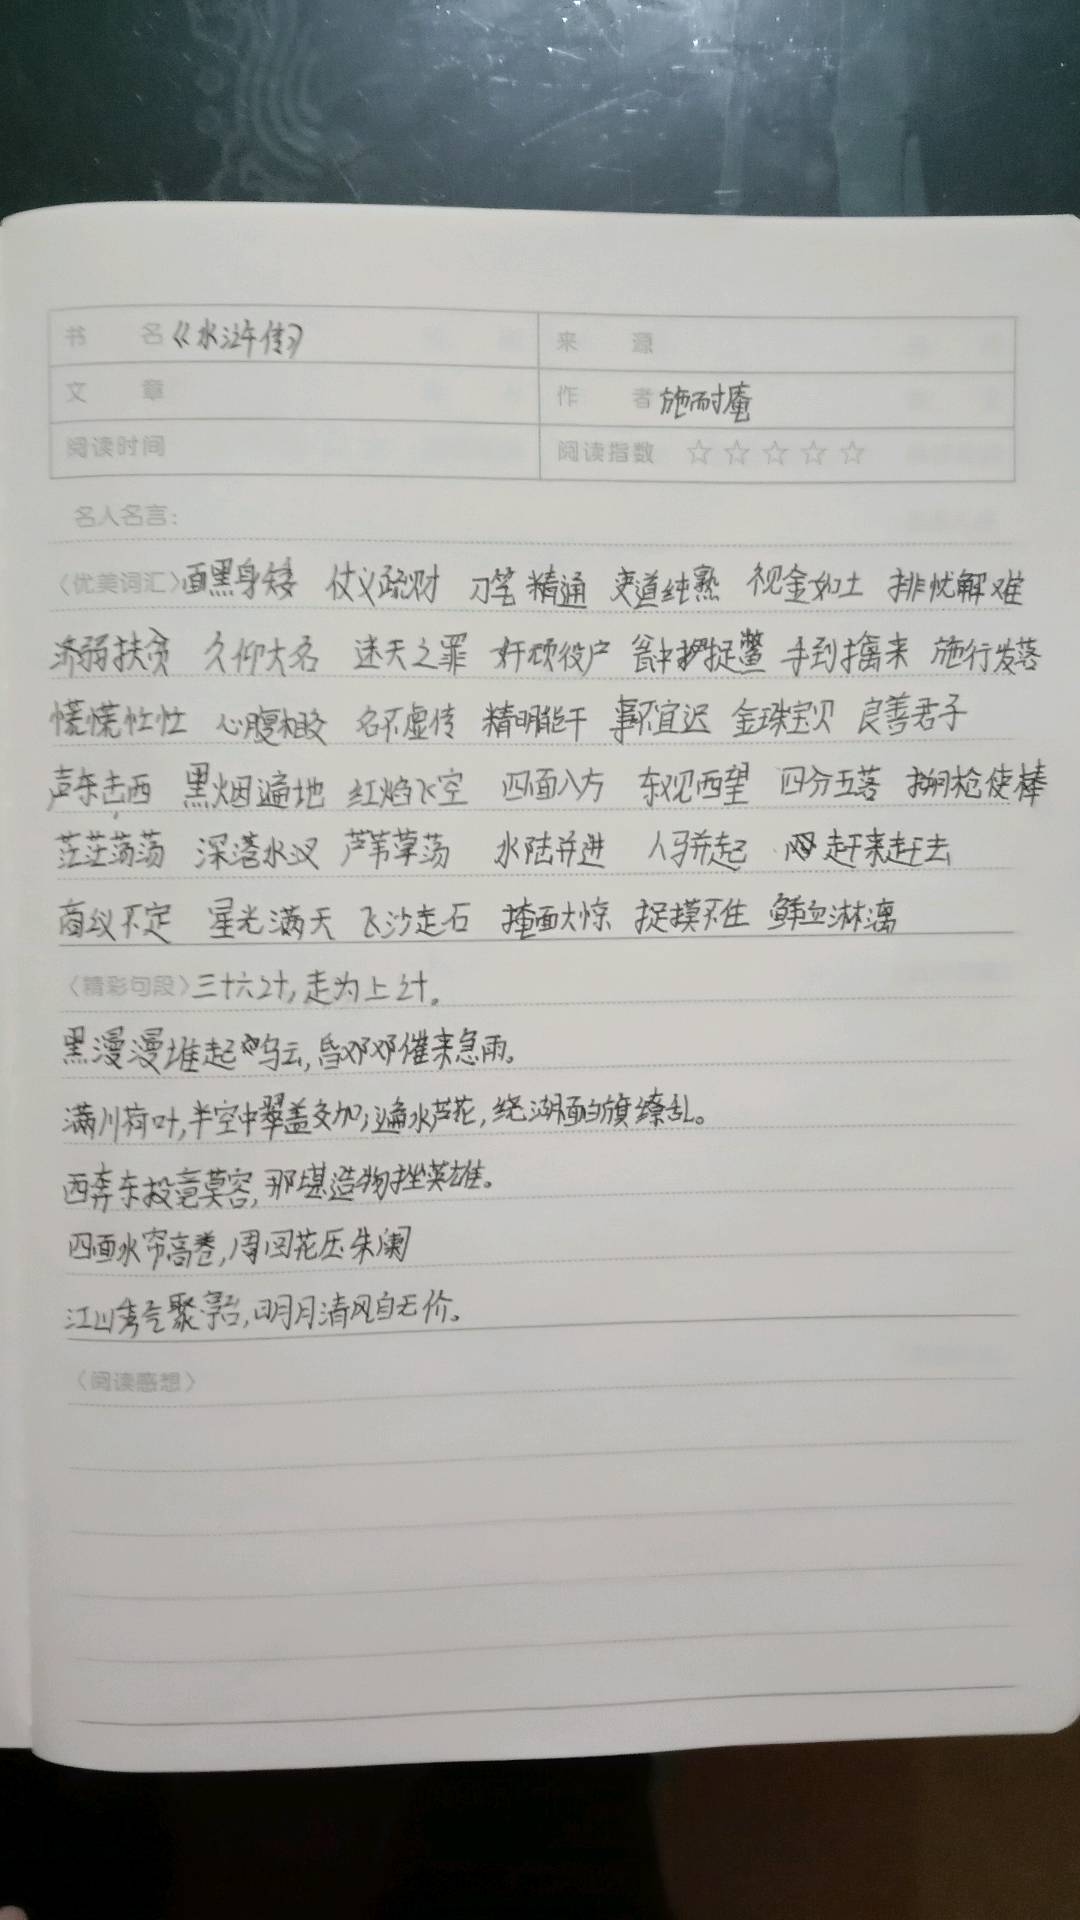 书 名《水浒传》 来 源
文 章 作 者 施耐庵
阅读时间 阅读指数 ☆☆☆☆☆
名人名言:
〈优美词汇〉面黑身矮 仗义疏财 刀笔精通 吏道纯熟 视金如土 排忧解难
济弱扶贫 久仰大名 迷天之罪 奸顽役户 瓮中捉鳖 手到擒来 施行发落
慌慌忙忙 心腹相交 名不虚传 精明能干 事不宜迟 金珠宝贝 良善君子
声东击西 黑烟遍地 红焰飞空 四面八方 东观西望 四分五落 搠枪使棒
茫茫荡荡 深港水汊 芦苇草荡 水陆并进 人马并起 赶来赶去
商议不定 星光满天 飞沙走石 掩面大惊 捉摸不住 鲜血淋漓
〈精彩句段〉三十六计,走为上计。
黑漫漫堆起乌云,昏邓邓催来急雨。
满川荷叶,半空中翠盖交加;遍水芦花,绕湖面白旗缭乱。
西奔东投竟莫容,那堪造物挫英雄。
四面水帘高卷,周回花压朱阑
江山秀气聚,明月清风自无价。
〈阅读感想〉